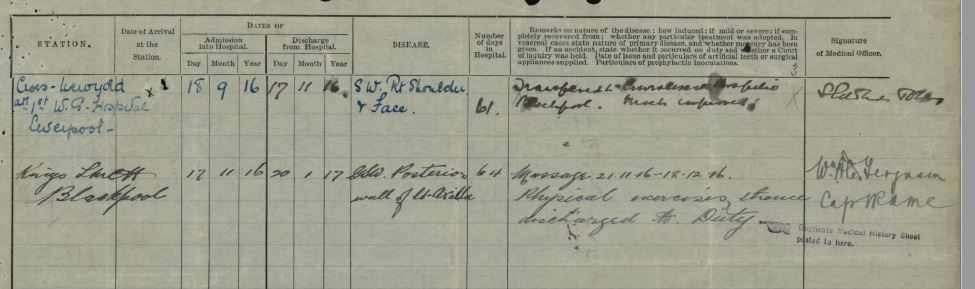 DATES OF
STATION.
Date of Arrival
at the
Station.
Admission
into Hospital.
Discharge
from Hospital.
Day Month Year Day Month Year
DISEASE.
Number
of days
in
Hospital.
Remarks on nature of the disease: how induced: if mild or severe: if com-
pletely recovered from: whether any particular treatment was adopted. In
venereal cases state nature of primary disease, and whether mercury has been
given. If an accident, state whether it occurred on duty and whether a Court
of inquiry was held. Date of issue and particulars of artificial teeth or surgical
appliances supplied. Particulars of prophylactic inoculations.
Signature
of Medical Officer.
18 9 16 17 11 16 S.W. Rt Shoulder
& Face. 61.
att 1st W.G. Hospital
Liverpool -
Transferred
Blackpool. Much improved
Kings
Blackpool
17 11 16 20 1 17 GSW. Posterior
wall of Axilla
64
Massage 21-11-16-18-12-16.
Physical exercises, thence
discharged to Duty
Ferguson
Capt RAMC
Duplicate Medical History Sheet
posted to here.